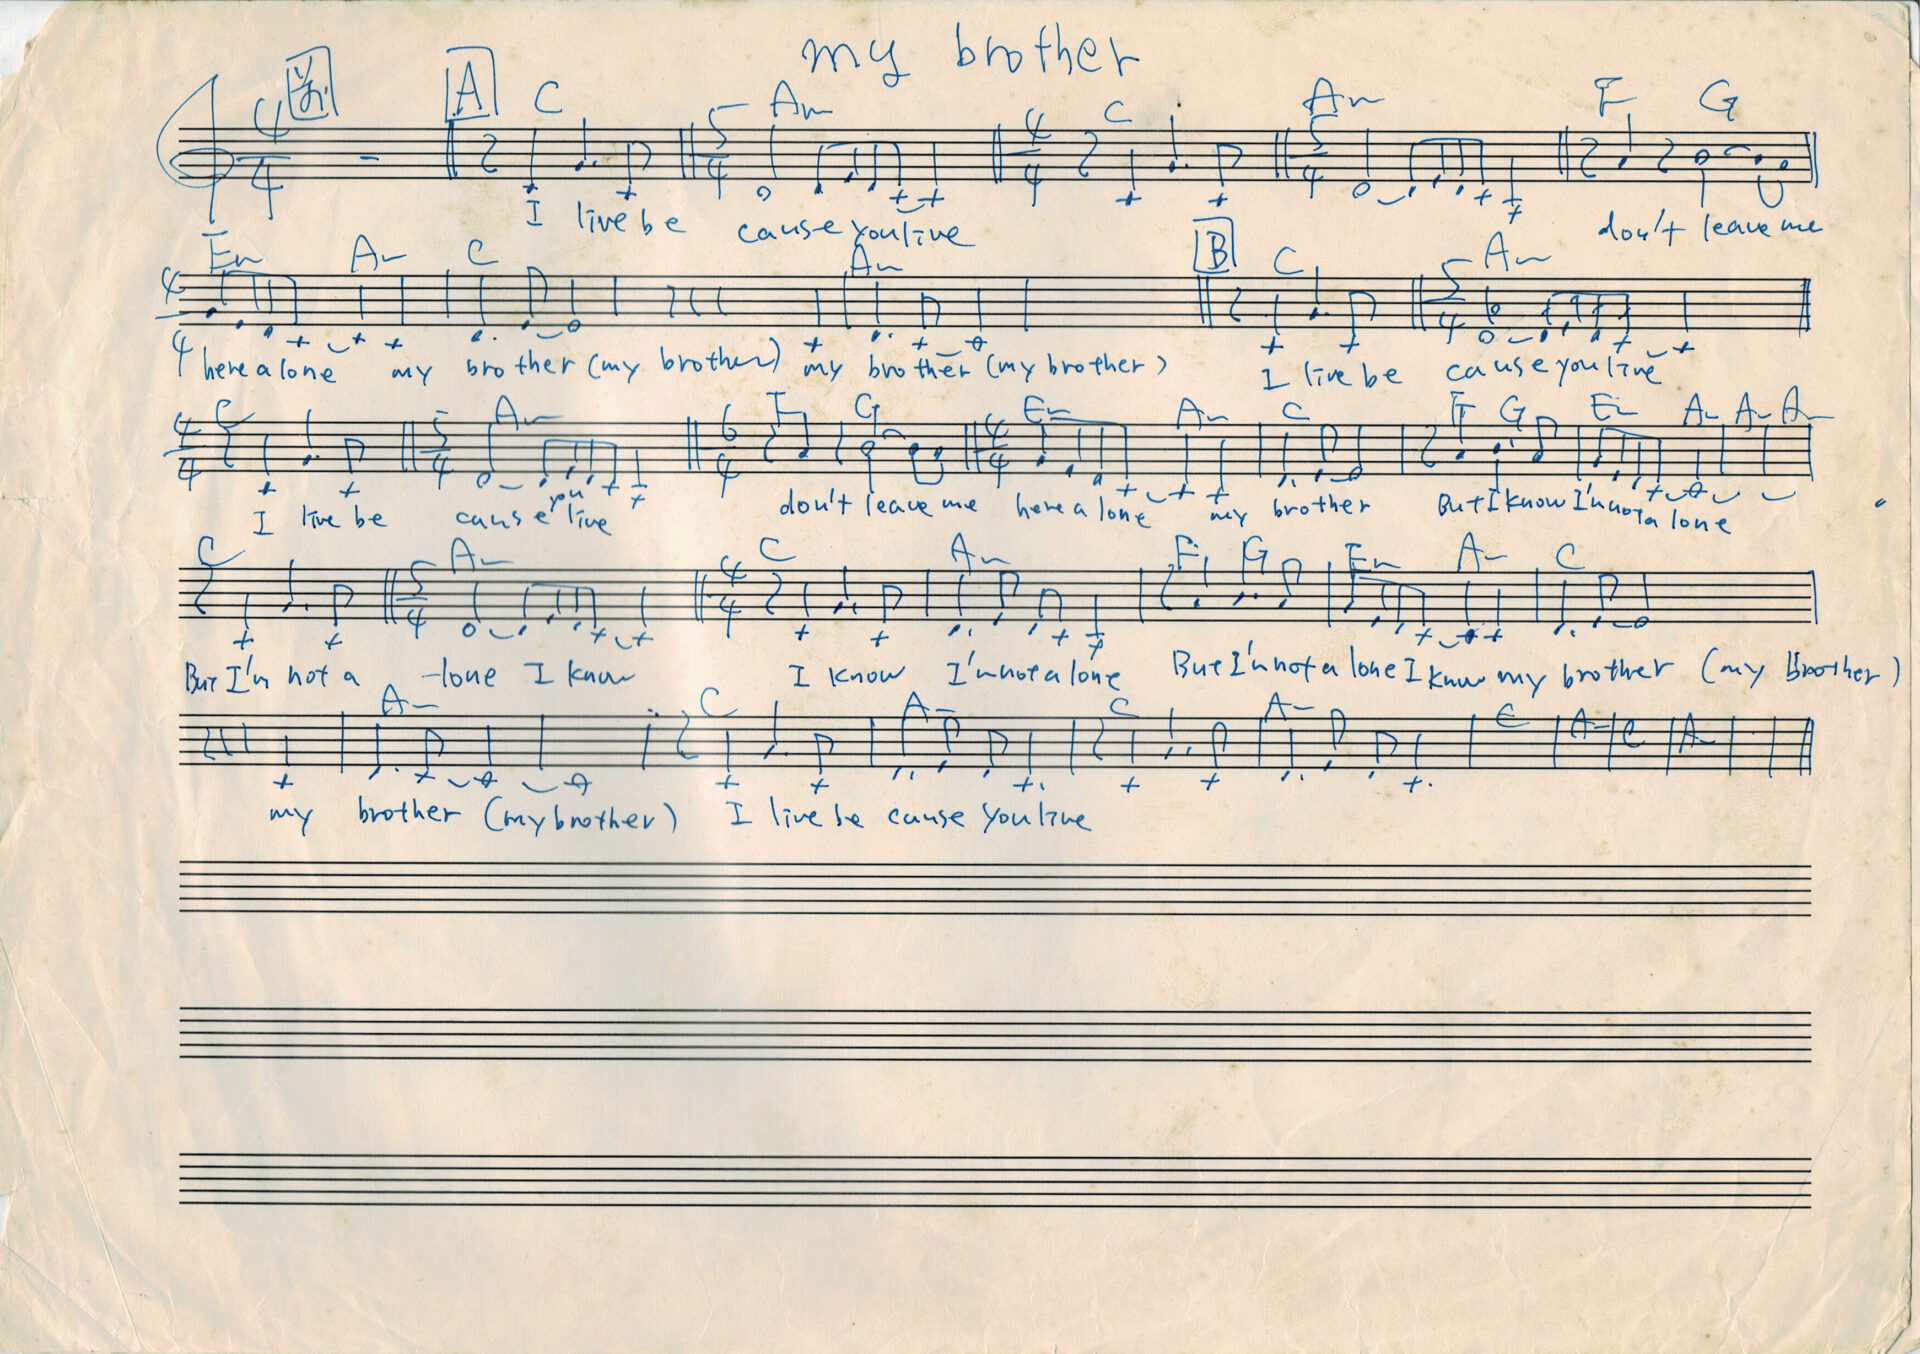 my brother
A C Am C Am F G
4/4 5/4 4/4 5/4
I live be cause you live don't leave me
Em Am C Am B C Am
4/4 5/4
here alone my brother (my brother) my brother (my brother) I live be cause you live
C Am F G Em Am C F G Em Am Am Am
4/4 5/4 6/4 4/4
I live be cause you live don't leave me here alone my brother But I know I'm not a lone
C Am C Am F G Em Am C
5/4 4/4
But I'm not a -lone I know I know I'm not alone But I'm not a lone I know my brother (my brother)
Am C Am C Am C Am C Am
my brother (my brother) I live be cause you live